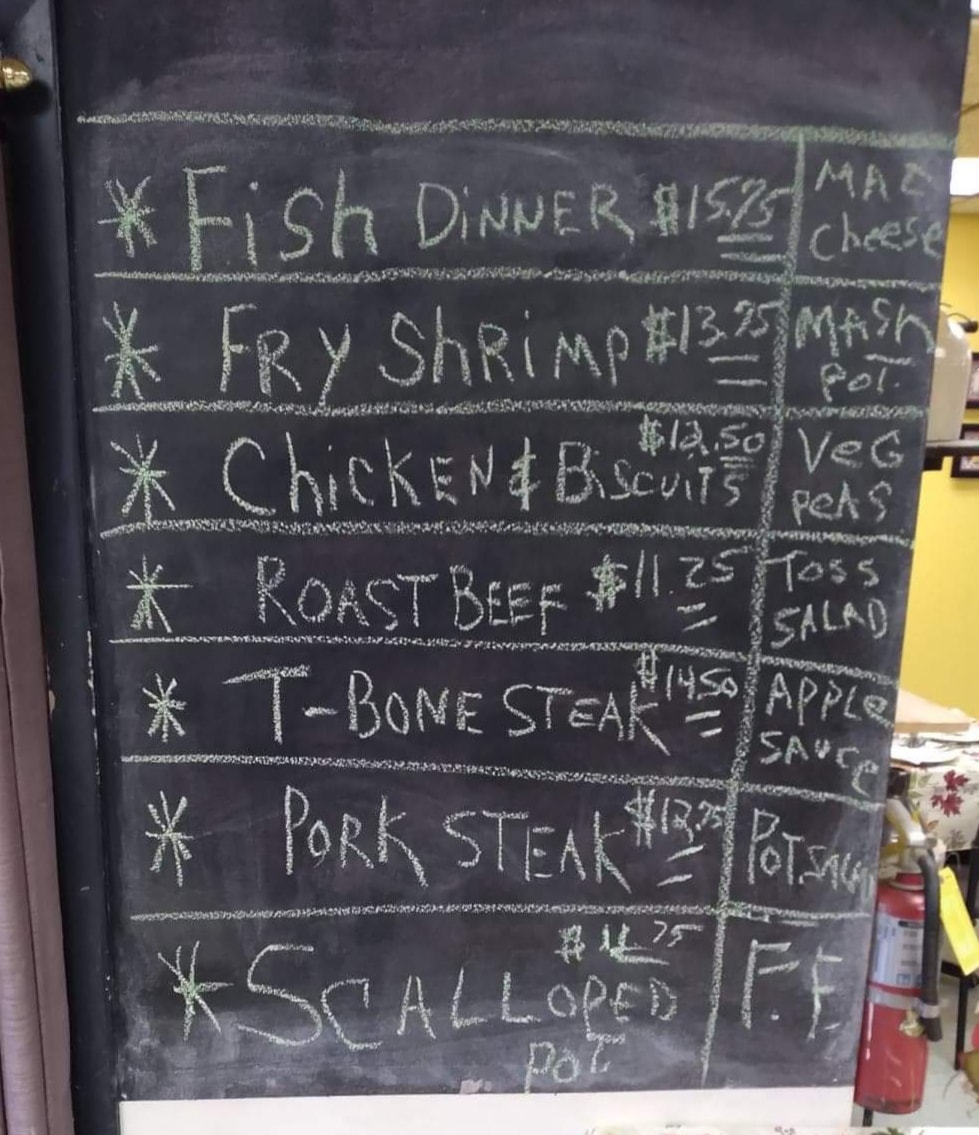 * Fish DiNNER $15.75
MAC
Cheese
* FRY ShRiMP $13.75
MASh
POT.
$12.50
* ChicKEN & BiSCUiTS
VeG
PeAS
* ROAST BEEF $11.25
TOSS
SALAD
* T-BONE STEAK $14.50
APPLe
SAUCe
* PORK STEAK $12.75
POT. SALAD
* SCALLOPED
POT
F.F